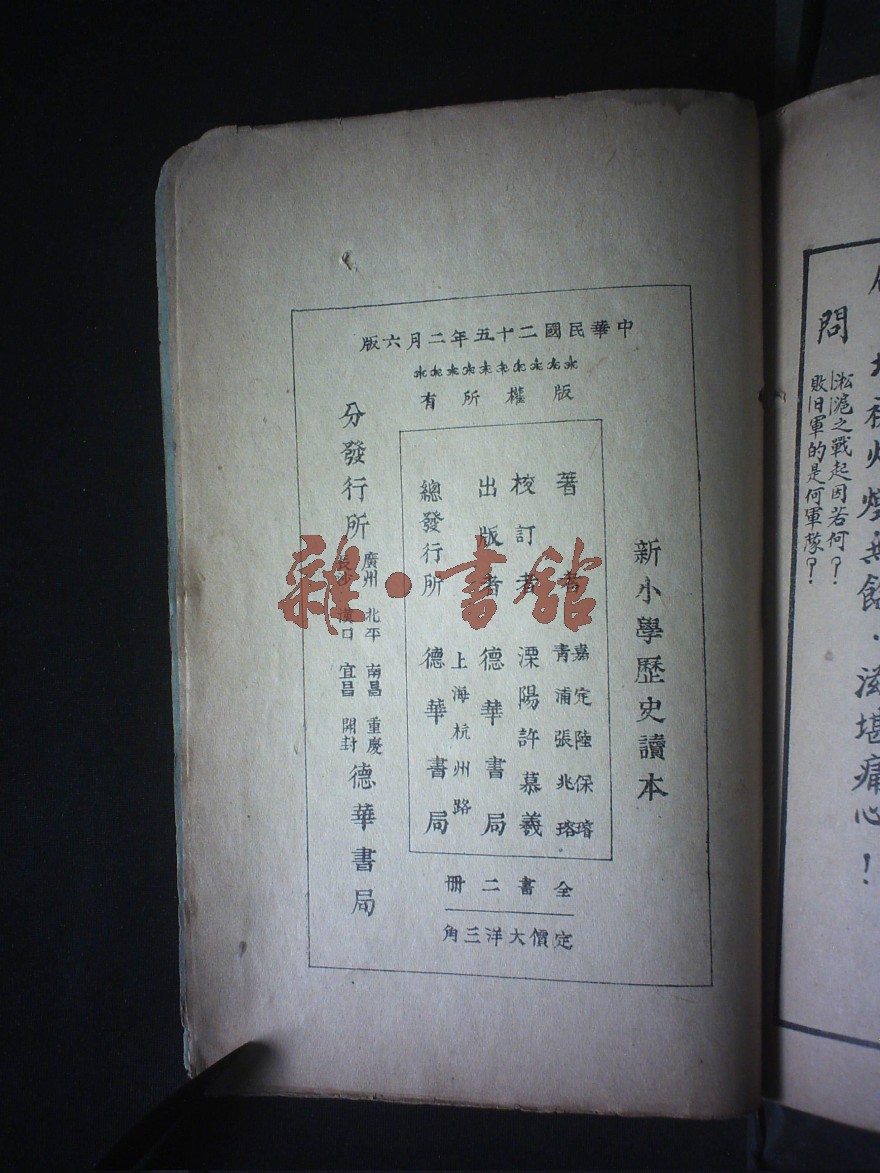 中華民國二十五年二月六版
版權所有
新小學歷史讀本
著者
嘉定陸保璿
青浦張兆瑢
校訂者 溧陽許慕羲
出版者 德華書局
上海杭州路
總發行所 德華書局
分發行所
廣州 北平 南昌 重慶
長沙 漢口 宜昌 開封
德華書局
全書二冊
定價大洋三角
雜·書館
問
淞滬之戰起因若何？
敗旧軍的是何軍隊？
滋堪痛心！